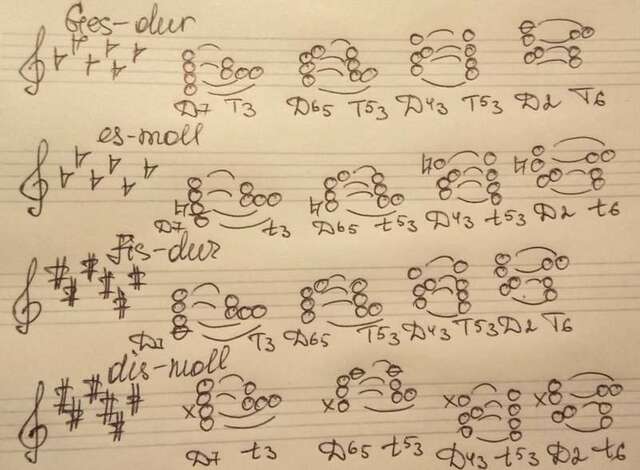 Ges-dur
D7 T3 D65 T53 D43 T53 D2 T6
es-moll
D7 t3 D65 t53 D43 t53 D2 t6
fis-dur
D7 T3 D65 T53 D43 T53 D2 T6
dis-moll
D7 t3 D65 t53 D43 t53 D2 t6